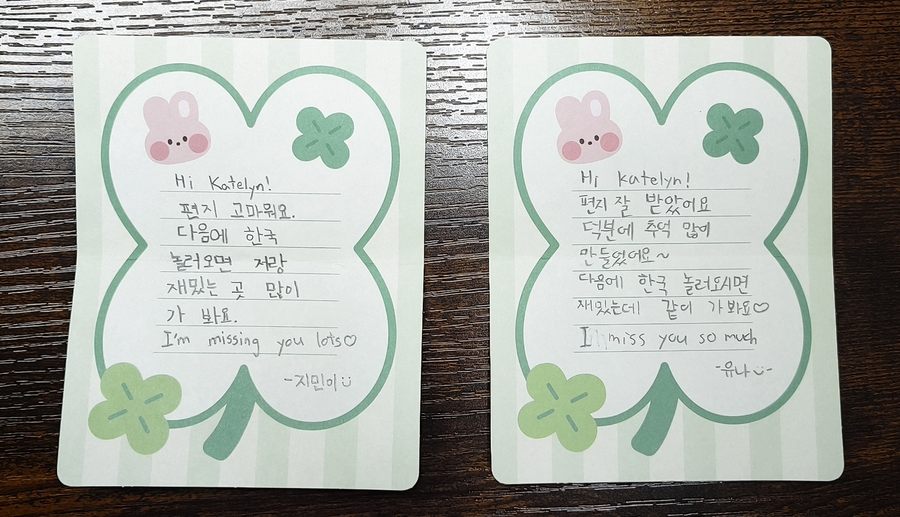 Hi Katelyn!
편지 고마워요.
다음에 한국
놀러오면 저랑
재밌는 곳 많이
가 봐요.
I'm missing you lots♡
-지민이
Hi Katelyn!
편지 잘 받았어요
덕분에 추억 많이
만들었어요~
다음에 한국 놀러오시면
재밌는데 같이 가봐요♡
I miss you so much
-유나-